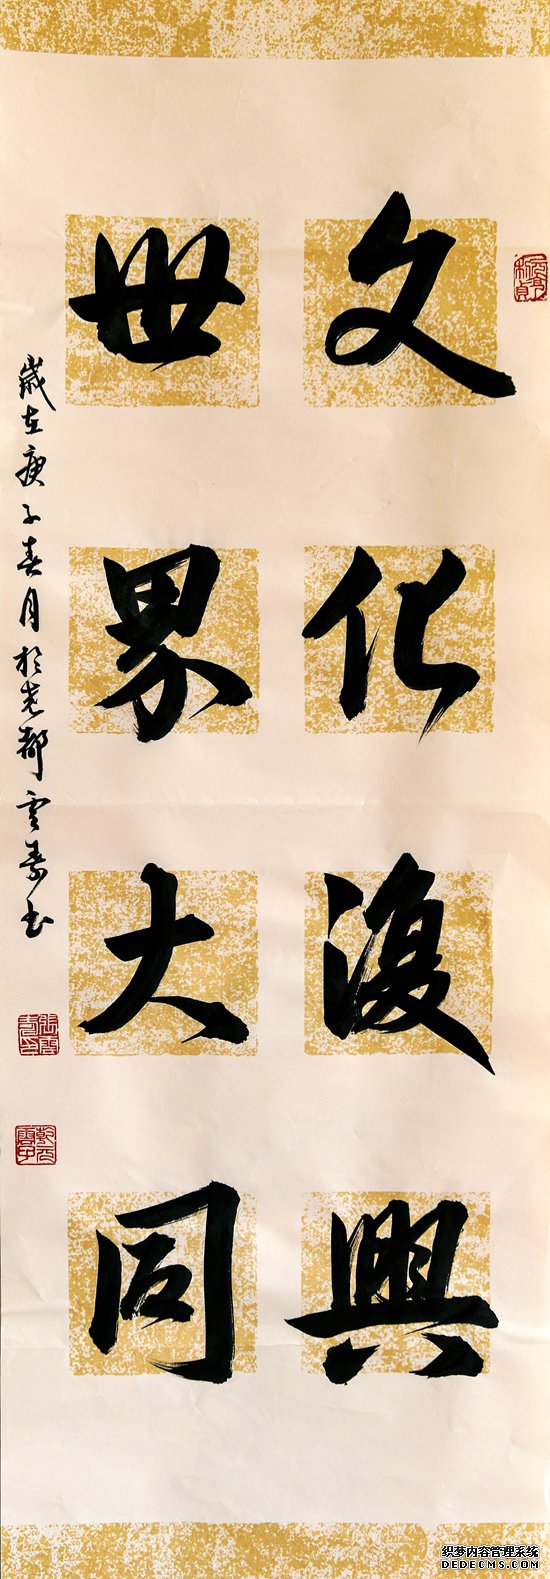 文化復興
世界大同
歲在庚子春月於光都雲素书
织梦内容管理系统
DEDECMS.COM